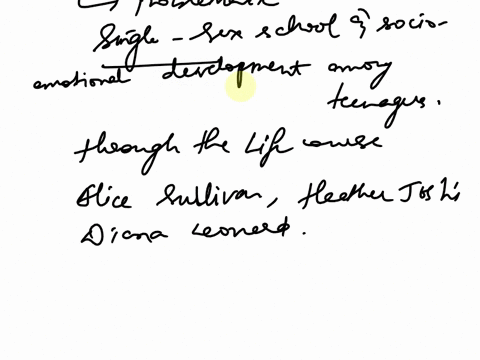 Single-sex school & socio-
emotional development among
teenagers.
through the life course
Alice Sullivan, Heather Joshi
Diana Leonard.